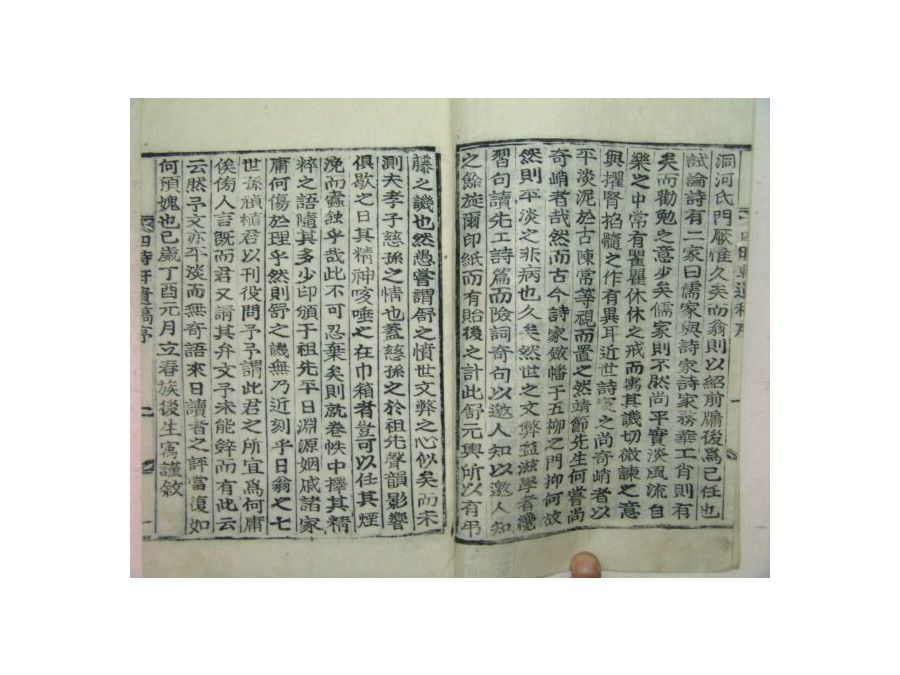 洞河氏門厥惟久矣而翁則以紹前牖後爲己任也
試論詩有二家曰儒家與詩家詩家務華工肖則有
矣而勸勉之意少矣儒家則不然尚平實淡風流自
樂之中常有瞿瞿休休之戒而寓其譏切微諫之意
與擢腎掐髓之作有異耳近世詩家之尚奇峭者以
平淡泥於古陳常等視而置之然靖節先生何嘗尚
奇峭者哉然而古今詩家斂幡于五柳之門抑何故
然則平淡之非病也久矣然世之文弊益滋學者纔
習句讀先工詩篇而險詞奇句以邀人知以邀人知
之餘旋爾印紙而有貽後之計此舒元輿所以有弔
藤之譏也然愚嘗謂舒之憤世文弊之心似矣而未
測夫孝子慈孫之情也蓋慈孫之於祖先聲韻影響
俱歇之日其精神咳唾之在巾箱者豈可以任其煙
浼而蠹蝕乎哉此不可忍棄矣則就卷帙中擇其精
粹之語隨其多少印頒于祖先平日淵源姻戚諸家
庸何傷於理乎然則舒之譏無乃近刻乎日翁之七
世孫禎植君以刊役問予予謂此君之所宜爲何庸
俟傍人言旣而君又請其弁文予未能辭而有此云
云然予文亦平淡而無奇語來日讀者之評當復如
何預媿也已歲丁酉元月立春族後生寯謹敘
四時軒遺稿序
二